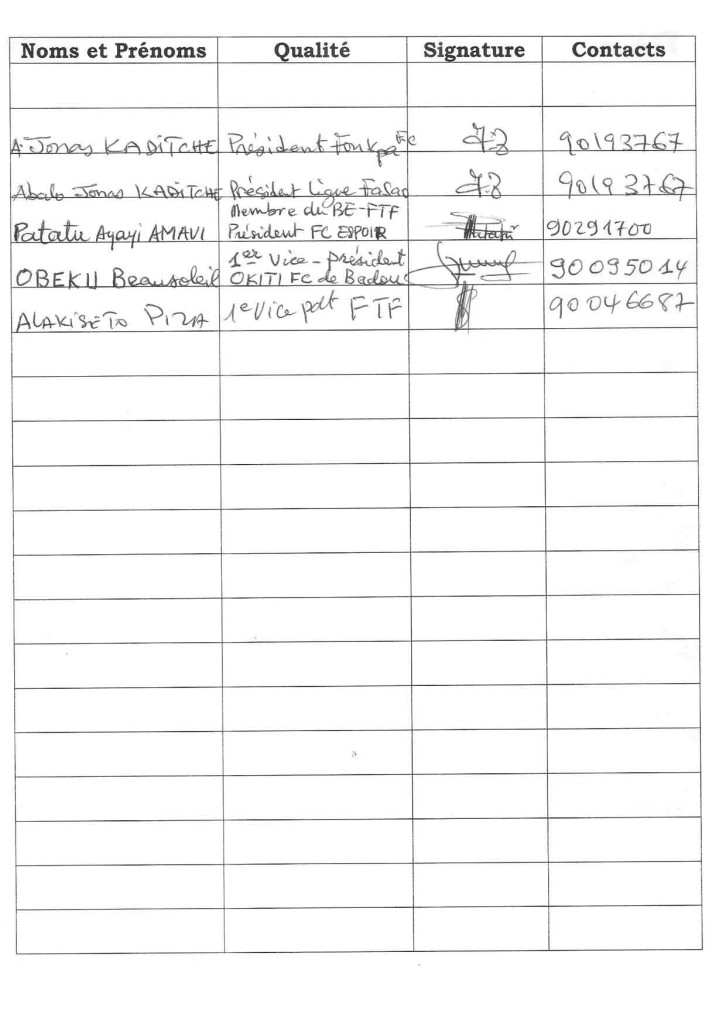 Noms et Prénoms Qualité Signature Contacts
A. Jonas KADITCHE Président Fonkpa FC 90193767
Abalo Jonas KADITCHE Président Ligue Fasao 90193767
Membre du BE-FTF
Patatu Ayayi AMAVI Président FC ESPOIR 90291700
1er Vice-président
OBEKU Beausoleil OKITI FC de Badou 90095014
ALAKISETO PIZA 1e Vice pdt FTF 90046687